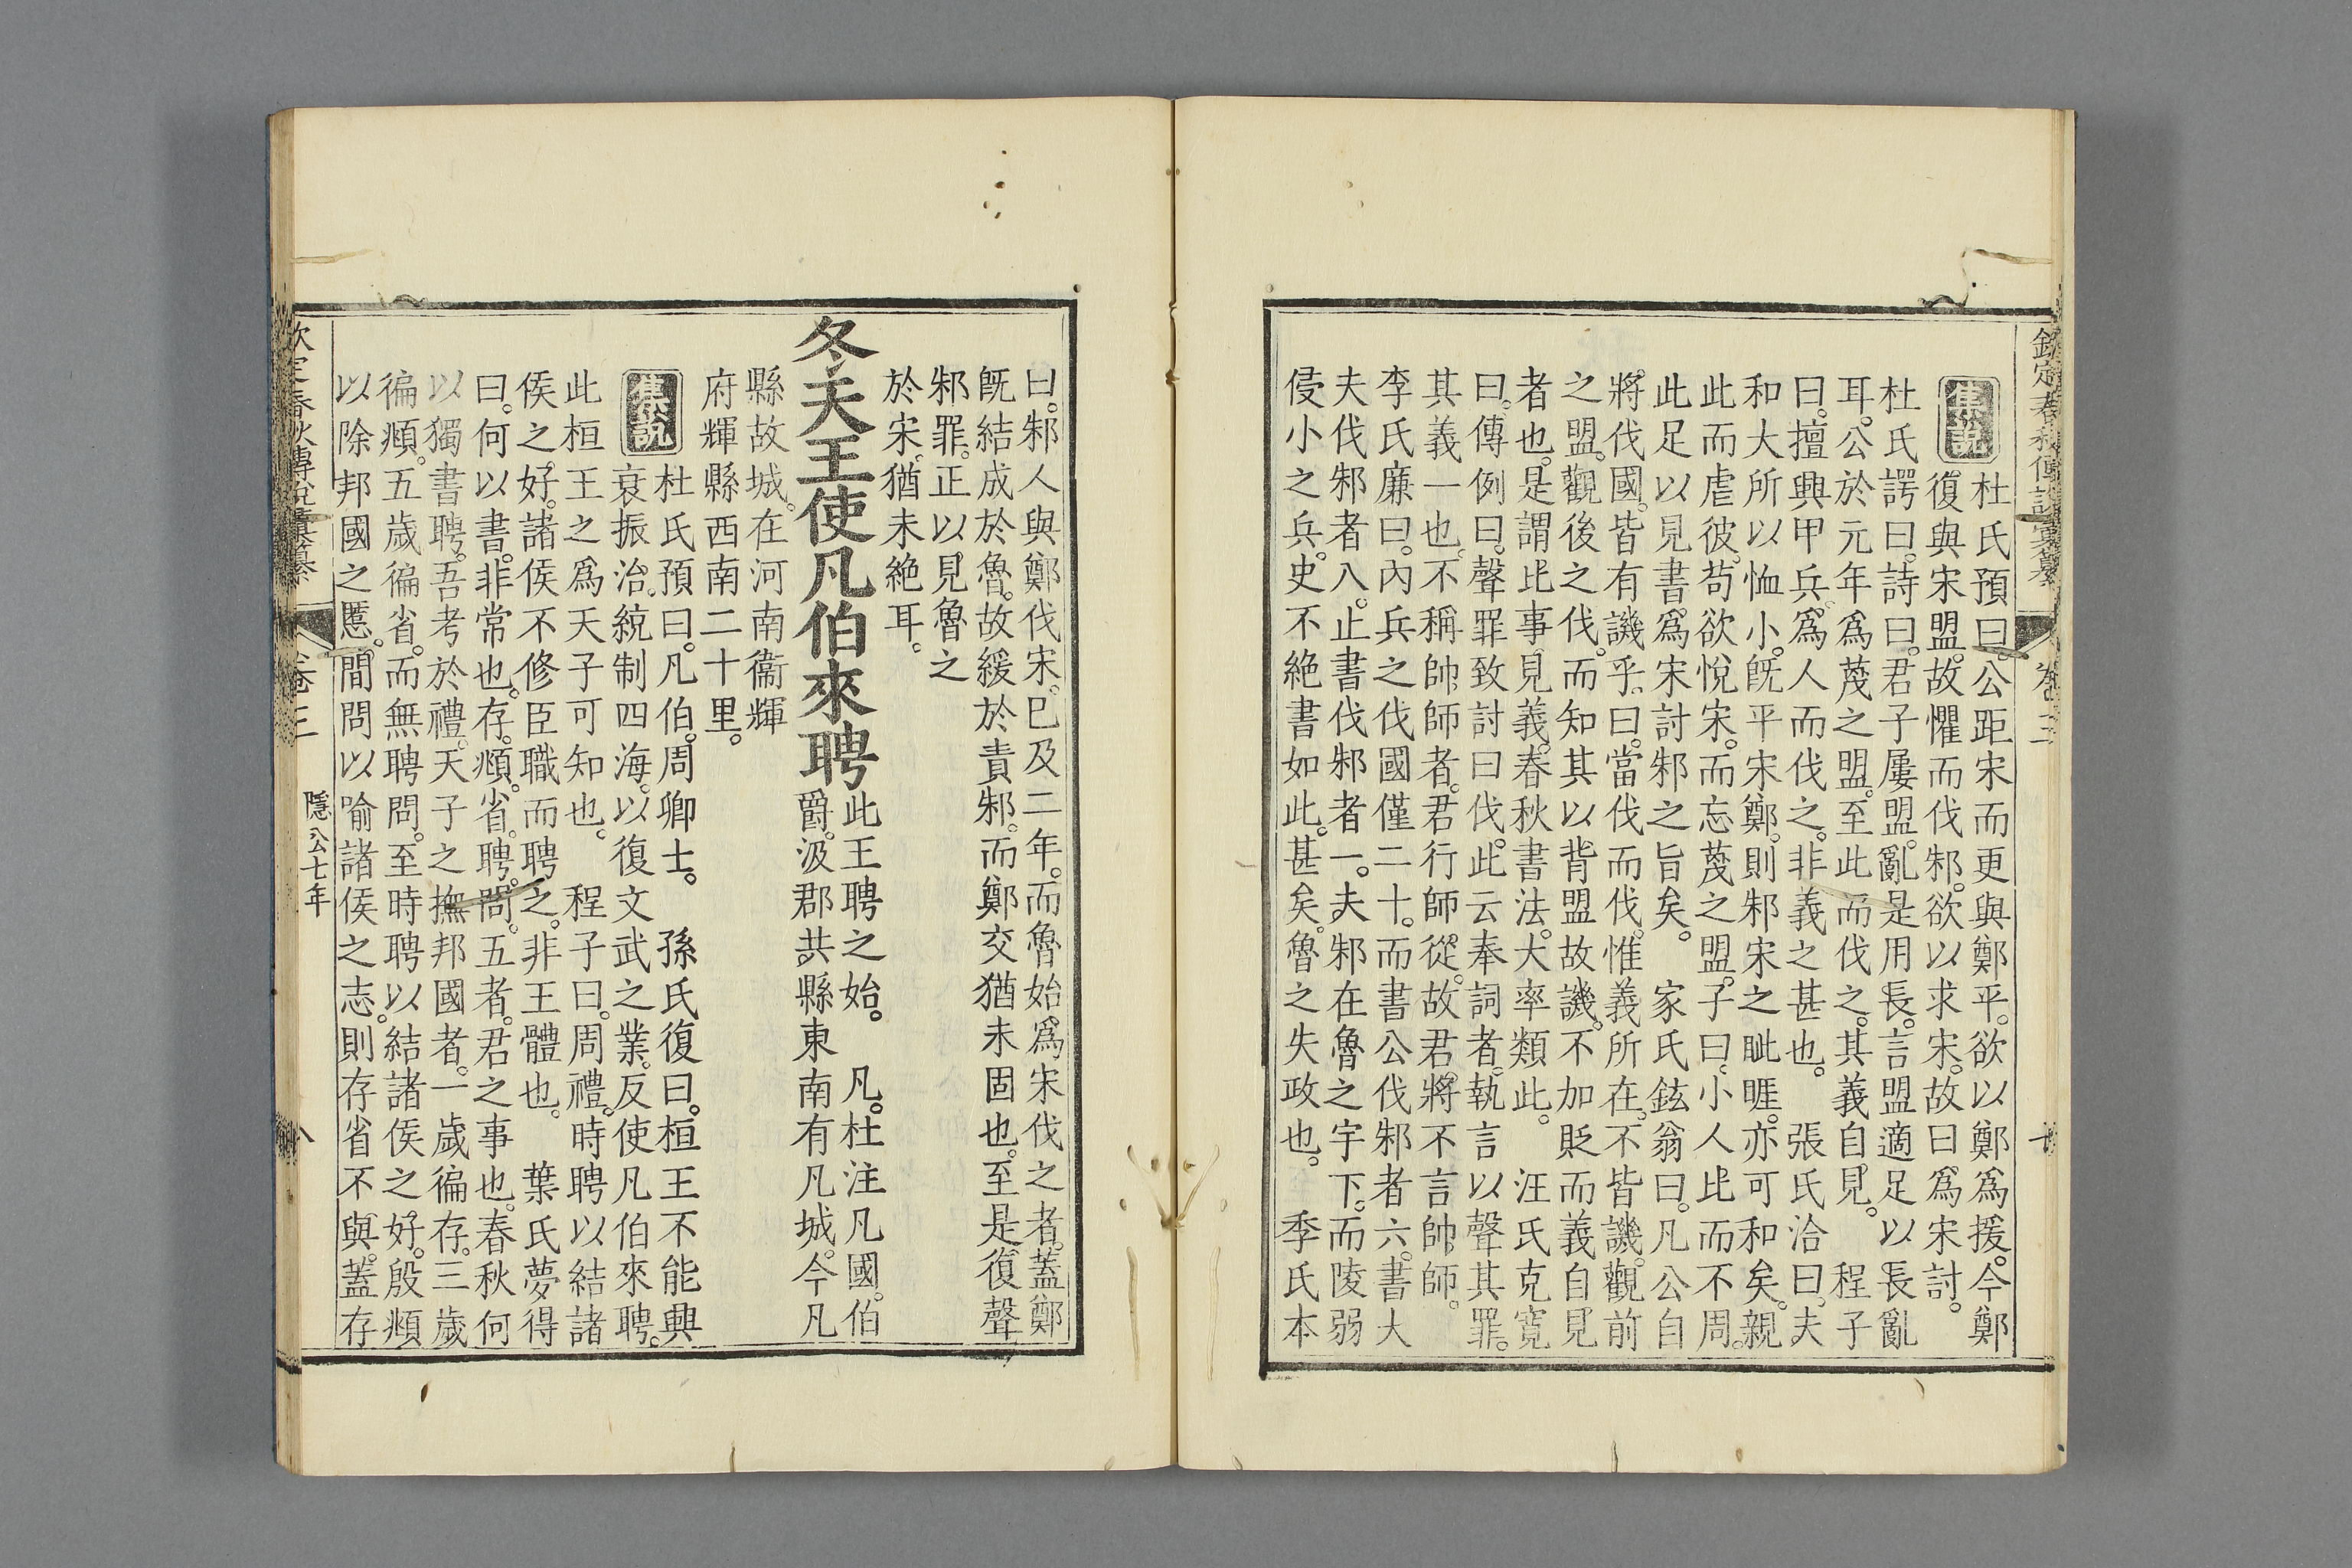 欽定春秋傳說彙纂 卷三
集說
杜氏預曰。公距宋而更與鄭平。欲以鄭爲援。今鄭
復與宋盟。故懼而伐邾。欲以求宋。故曰爲宋討。
杜氏諤曰。詩曰。君子屢盟。亂是用長。言盟適足以長亂
耳。公於元年爲蔑之盟。至此而伐之。其義自見。 程子
曰。擅興甲兵。爲人而伐之。非義之甚也。 張氏洽曰。夫
和大所以恤小。旣平宋鄭。則邾宋之眦睚。亦可和矣。親
此而虐彼。苟欲悅宋。而忘蔑之盟。子曰。小人比而不周。
此足以見書。爲宋討邾之旨矣。 家氏鉉翁曰。凡公自
將。伐國。皆有譏乎。曰。當伐而伐。惟義所在。不皆譏。觀前
之盟。觀後之伐。而知其以背盟故譏。不加貶而義自見
者也。是謂比事見義。春秋書法。大率類此。 汪氏克寬
曰。傳例曰。聲罪致討曰伐。此云奉詞者。執言以聲其罪。
其義一也。不稱帥師者。君行師從。故君將不言帥師。
李氏廉曰。內兵之伐國僅二十。而書公伐邾者六。書大
夫伐邾者八。止書伐邾者一。夫邾在魯之宇下。而陵弱
侵小之兵。史不絕書如此。甚矣。魯之失政也。 季氏本
曰。邾人與鄭伐宋。已及二年。而魯始爲宋伐之者。蓋鄭
旣結成於魯。故緩於責邾。而鄭交猶未固也。至是復聲
邾罪。正以見魯之
於宋。猶未絕耳。
冬天王使凡伯來聘
此王聘之始。 凡。杜注凡國。伯
爵。汲郡共縣東南有凡城。今凡
縣故城。在河南衞輝
府輝縣西南二十里。
集說
杜氏預曰。凡伯。周卿士。 孫氏復曰。桓王不能興
衰振治。統制四海。以復文武之業。反使凡伯來聘。
此桓王之爲天子可知也。 程子曰。周禮。時聘以結諸
侯之好。諸侯不修臣職而聘之。非王體也。 葉氏夢得
曰。何以書。非常也。存。頫。省。聘。問。五者。君之事也。春秋何
以獨書聘。吾考於禮。天子之撫邦國者。一歲徧存。三歲
徧頫。五歲徧省。而無聘問。至時聘以結諸侯之好。殷頫
以除邦國之慝。間問以喻諸侯之志。則存省不與。蓋存
欽定春秋傳說彙纂 卷三 隱公七年 八